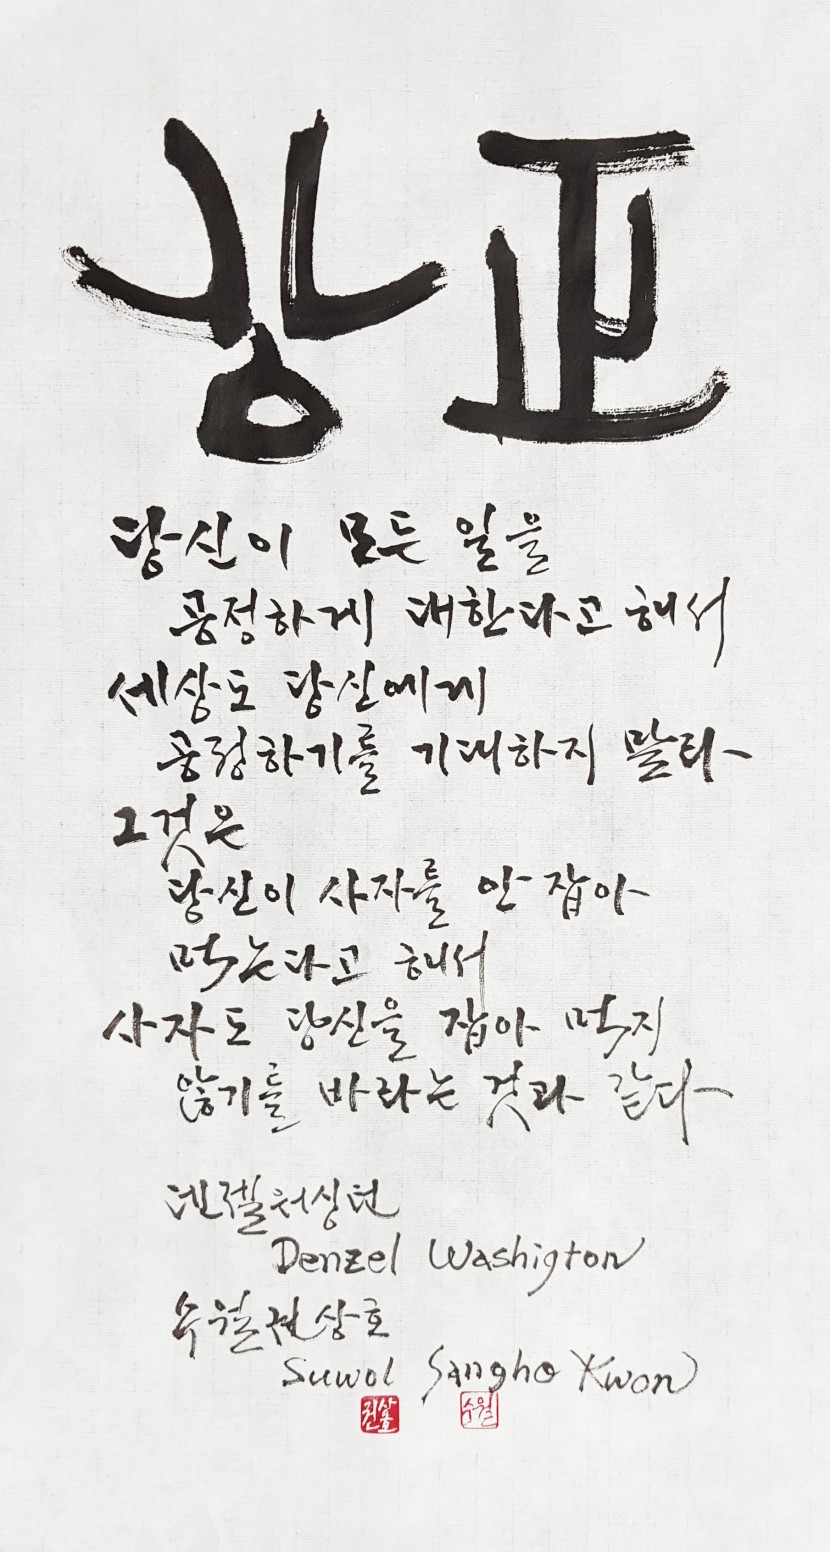 당신이 모든 일을
공정하게 대한다고 해서
세상도 당신에게
공정하기를 기대하지 말라
그것은
당신이 사자를 안 잡아
먹는다고 해서
사자도 당신을 잡아 먹지
않기를 바라는 것과 같다
덴젤워싱턴
Denzel Washigton
수월권상호
Suwol Sangho Kwon
권상호 수월